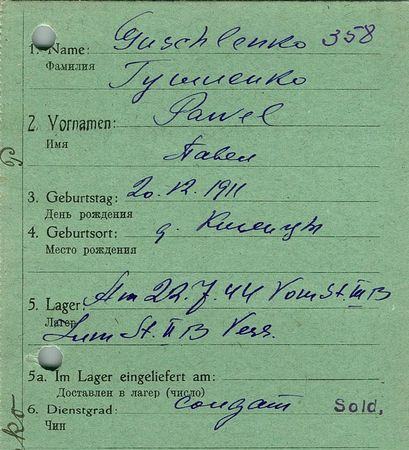 1. Name: Guschlenko 358
Фамилия
Гушленко
2. Vornamen: Pawel
Имя
Павел
3. Geburtstag: 20.12.1911
День рождения
4. Geburtsort: д.
Место рождения
5. Lager: Am 22.7.44 Vom St. III B
Лагерь
Zum St. II B Vers.
5a. Im Lager eingeliefert am:
Доставлен в лагер (число)
6. Dienstgrad: солдат Sold.
Чин